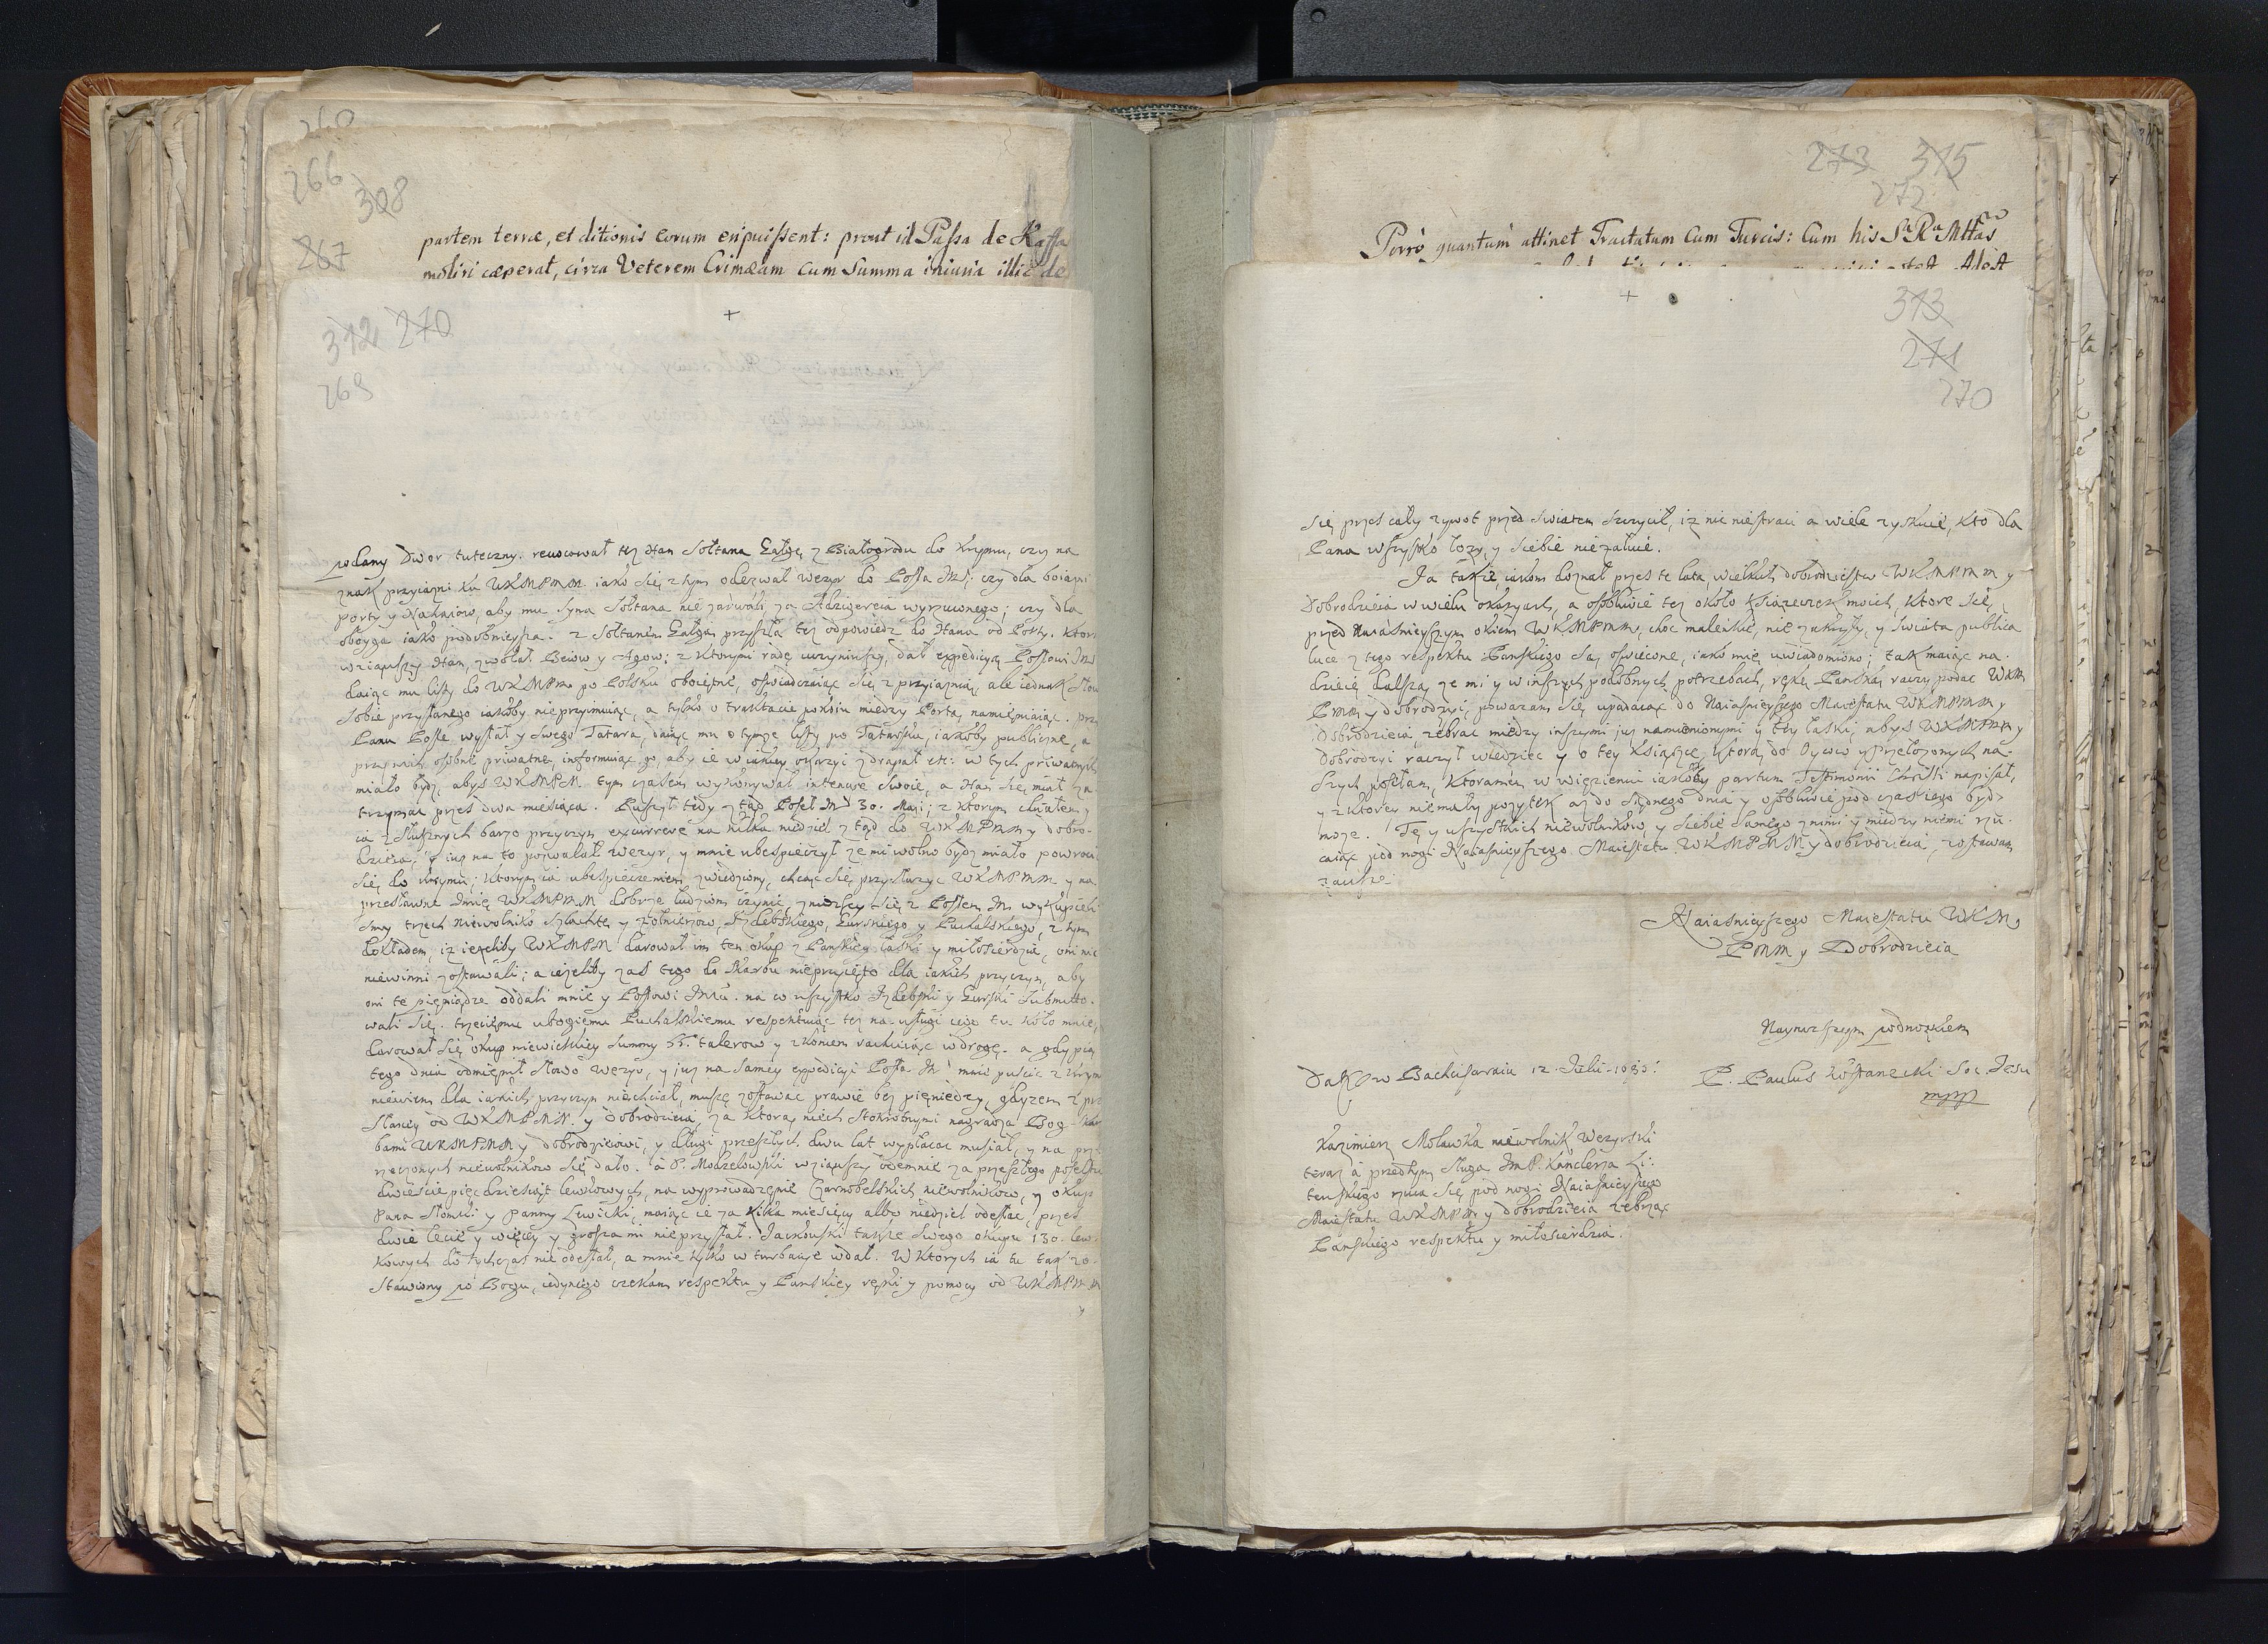 260
266
308
267
partem terræ, et ditionis eorum eripuissent: prout id Passa de Kaffa
moliri cæperat, circa Veterem Crimæam cum summa iniuria illic de
312 270
269
+
podany Dwor tuteczny. rewocował też Han Sołtana Gałgę z Białogrodu do Krymu, czy na
znak przyiazni ku WKMPMM. iako się z tym odezwał Wezyr do Posła JM: czy dla boiazni
porty y Nahaiow, aby mu syna Sołtana nie
oboyga iako podobnieysza. z Sołtanem Gałgą przyszła też odpowiedz do Hana od Porty.
wziąwszy Han, zwołał Beiow y Agow; z ktorymi radę uczyniwszy, dał expedicyą Posłowi JM
daiąc mu listy do WKMPM po Polsku oboiętne, oswiadczaiąc się z przyiaznią, ale iednak
sobie przysłanego iakoby nie przyimuiąc, a tylko o traktacie pokoiu miedzy Portą namieniaiąc.
Panu Posle wysłał y swego Tatara, daiąc mu o tymże listy po Tatarsku, iakoby publiczne, a
przy nich osobne priwatne, informuiąc go, aby ie w iakiey okazyi zdrapał etc: w tych priwatnych
miało bydz abyś WKMPM. tym czasem wykonywał intencye swoie, a Han się miał za
trzymać przez dwa miesiąca. Ruszył tedy ztąd Poseł JM 30. Maii; z ktorym chciałem y
ia z słusznych barzo przyczyn excurrere na kilka niedziel ztąd do WKMPMM y dobro-
dzieia, y iuż na to pozwalał Wezyr, y mnie ubespieczył że mi wolno bydz miało powroci
się do Krymu; ktorym ia ubespieczeniem zwiedziony, chcąc się przysłużyć WKMPMM y na
przesławne Imię WKMPMM dobrze ludziom czynić, zniozszy się z Posłem JM wykupieli
smy trzech niewolnikow szlachtę y żołnierzow, Izdebskiego, Gurskiego y Puchalskiego, z tym
dokładem, iż ieżeliby WKMPM darował im ten okup z Panskiey łaski y miłosierdzia, oni nic
niewinni zostawali; a ieżeliby zas tego do skarbu nieprzyięto dla iakich przyczyn, aby
oni te pieniądze oddali mnie y Posłowi JMci. na co wszystko Izdebski y Gurski submitto-
wali się. trzeciemu ubogiemu Puchalskiemu respektuiąc też na usługi iego tu koło mnie,
darował się okup niewielkiey summy talerow y z koniem rachuiąc w drogę. a gdy pią
tego dnia odmienił słowo Wezyr, y iuż na samey expedicyi Posła JM mnie puscić z Krymu
niewiem dla iakich przyczyn niechciał, muszę zostawać prawie bez pieniedzy, gdyzem z
słaney od WKMPMM. y Dobrodzieia, za ktorą niech stokrotnymi nagradza Bog
bami WKMPMM y dobrodzieiowi, y długi przeszłych dwu lat wypłacać musiał, y na
rzeczonych niewolnikow się dało. a P. Modzelowski wziąwszy odemnie za przeszłego poselstwa
dwiescie pięcdziesiąt lewkowych, na wyprowadzenie Czarnobelskich niewolnikow, y okup
Pana Słomki y Panny Lewicki, maiąc ie za kilka miesięcy albo niedziel odesłać, przez
dwie lecie y więcey y grosza mi nieprzysłał. Jackowski także swego okupu 130. lew-
kowych do tychczas nie odesłał, a mnie tylko w turbacye wdał. W ktorych ia tu tak zo-
stawiony po Bogu, iedynego czekam respektu y Panskiey ręki y pomocy od WKMPMM
y
273 315
272
Porrò quantum attinet Tractatum cum Turcis: Cum his Sa Ra Mttas
+
313
271
270
się przez cały zywot przed swiatem szczycił, iz nic niestraci a wiele zyskuie, kto dla
Pana wszystko łozy, y siebie nieżałuie.
Ja także, iakom doznał przez te lata, wielkich dobrodzieistw WKMPMM y
Dobrodzieia w wielu okazyach, a osobliwie też około ksiązeczek moich, ktore się
przed Naiasnieyszym okiem WKMPMM, choc malenkie, nie zakryły, y swiata publica
luce z tego respektu Panskiego są oswiecone, iako mię uwiadomiono; tak maiąc na-
dzieię dalszą że mi y w inszych podobnych potrzebach, rękę Panską raczy podac WKM
PMM y dobrodzyi, poważam się upadaiąc do Naiasnieyszego Maiestatu WKMPMM y
Dobrodzieia, żebrac miedzy inszymi iuz namienionymi y tey łaski, abys WKMPMM y
Dobrodzyi raczył wiedziec y o tey Ksiąszce, ktorą do Oycow y Przełozonych na-
szych posłam, ktoramem w więzieniu iakoby partum Testimonii Christi napisał,
y z ktorey niemały pozytek az do sądnego dnia y osobliwie pod czas iego bydz
moze. Tę y wszystkich niewolnikow, y siebie samego z nimi y miedzy nimi rzu-
caiąc pod nogi Naiasnieyszego Maiestatu WKMPMM y dobrodzieia, zostawam
zawsze
Naiasnieyszego Maiestatu WKM
PMM y Dobrodzieia
Naynizszym podnozkiem
Dat w Bachcisaraiu 12. Julii. 1686. P. Paulus Kostanecki Soc. Jesu
mpp
Kazimierz Moławka niewolnik Wezyrski
teraz a przedtym sługa JMP. Kanclerza Li-
tewskiego rzuca się pod nogi Naiasnieyszego
Maiestatu WKMPMM y dobrodzieia żebrząc
Panskiego respektu y miłosierdzia.